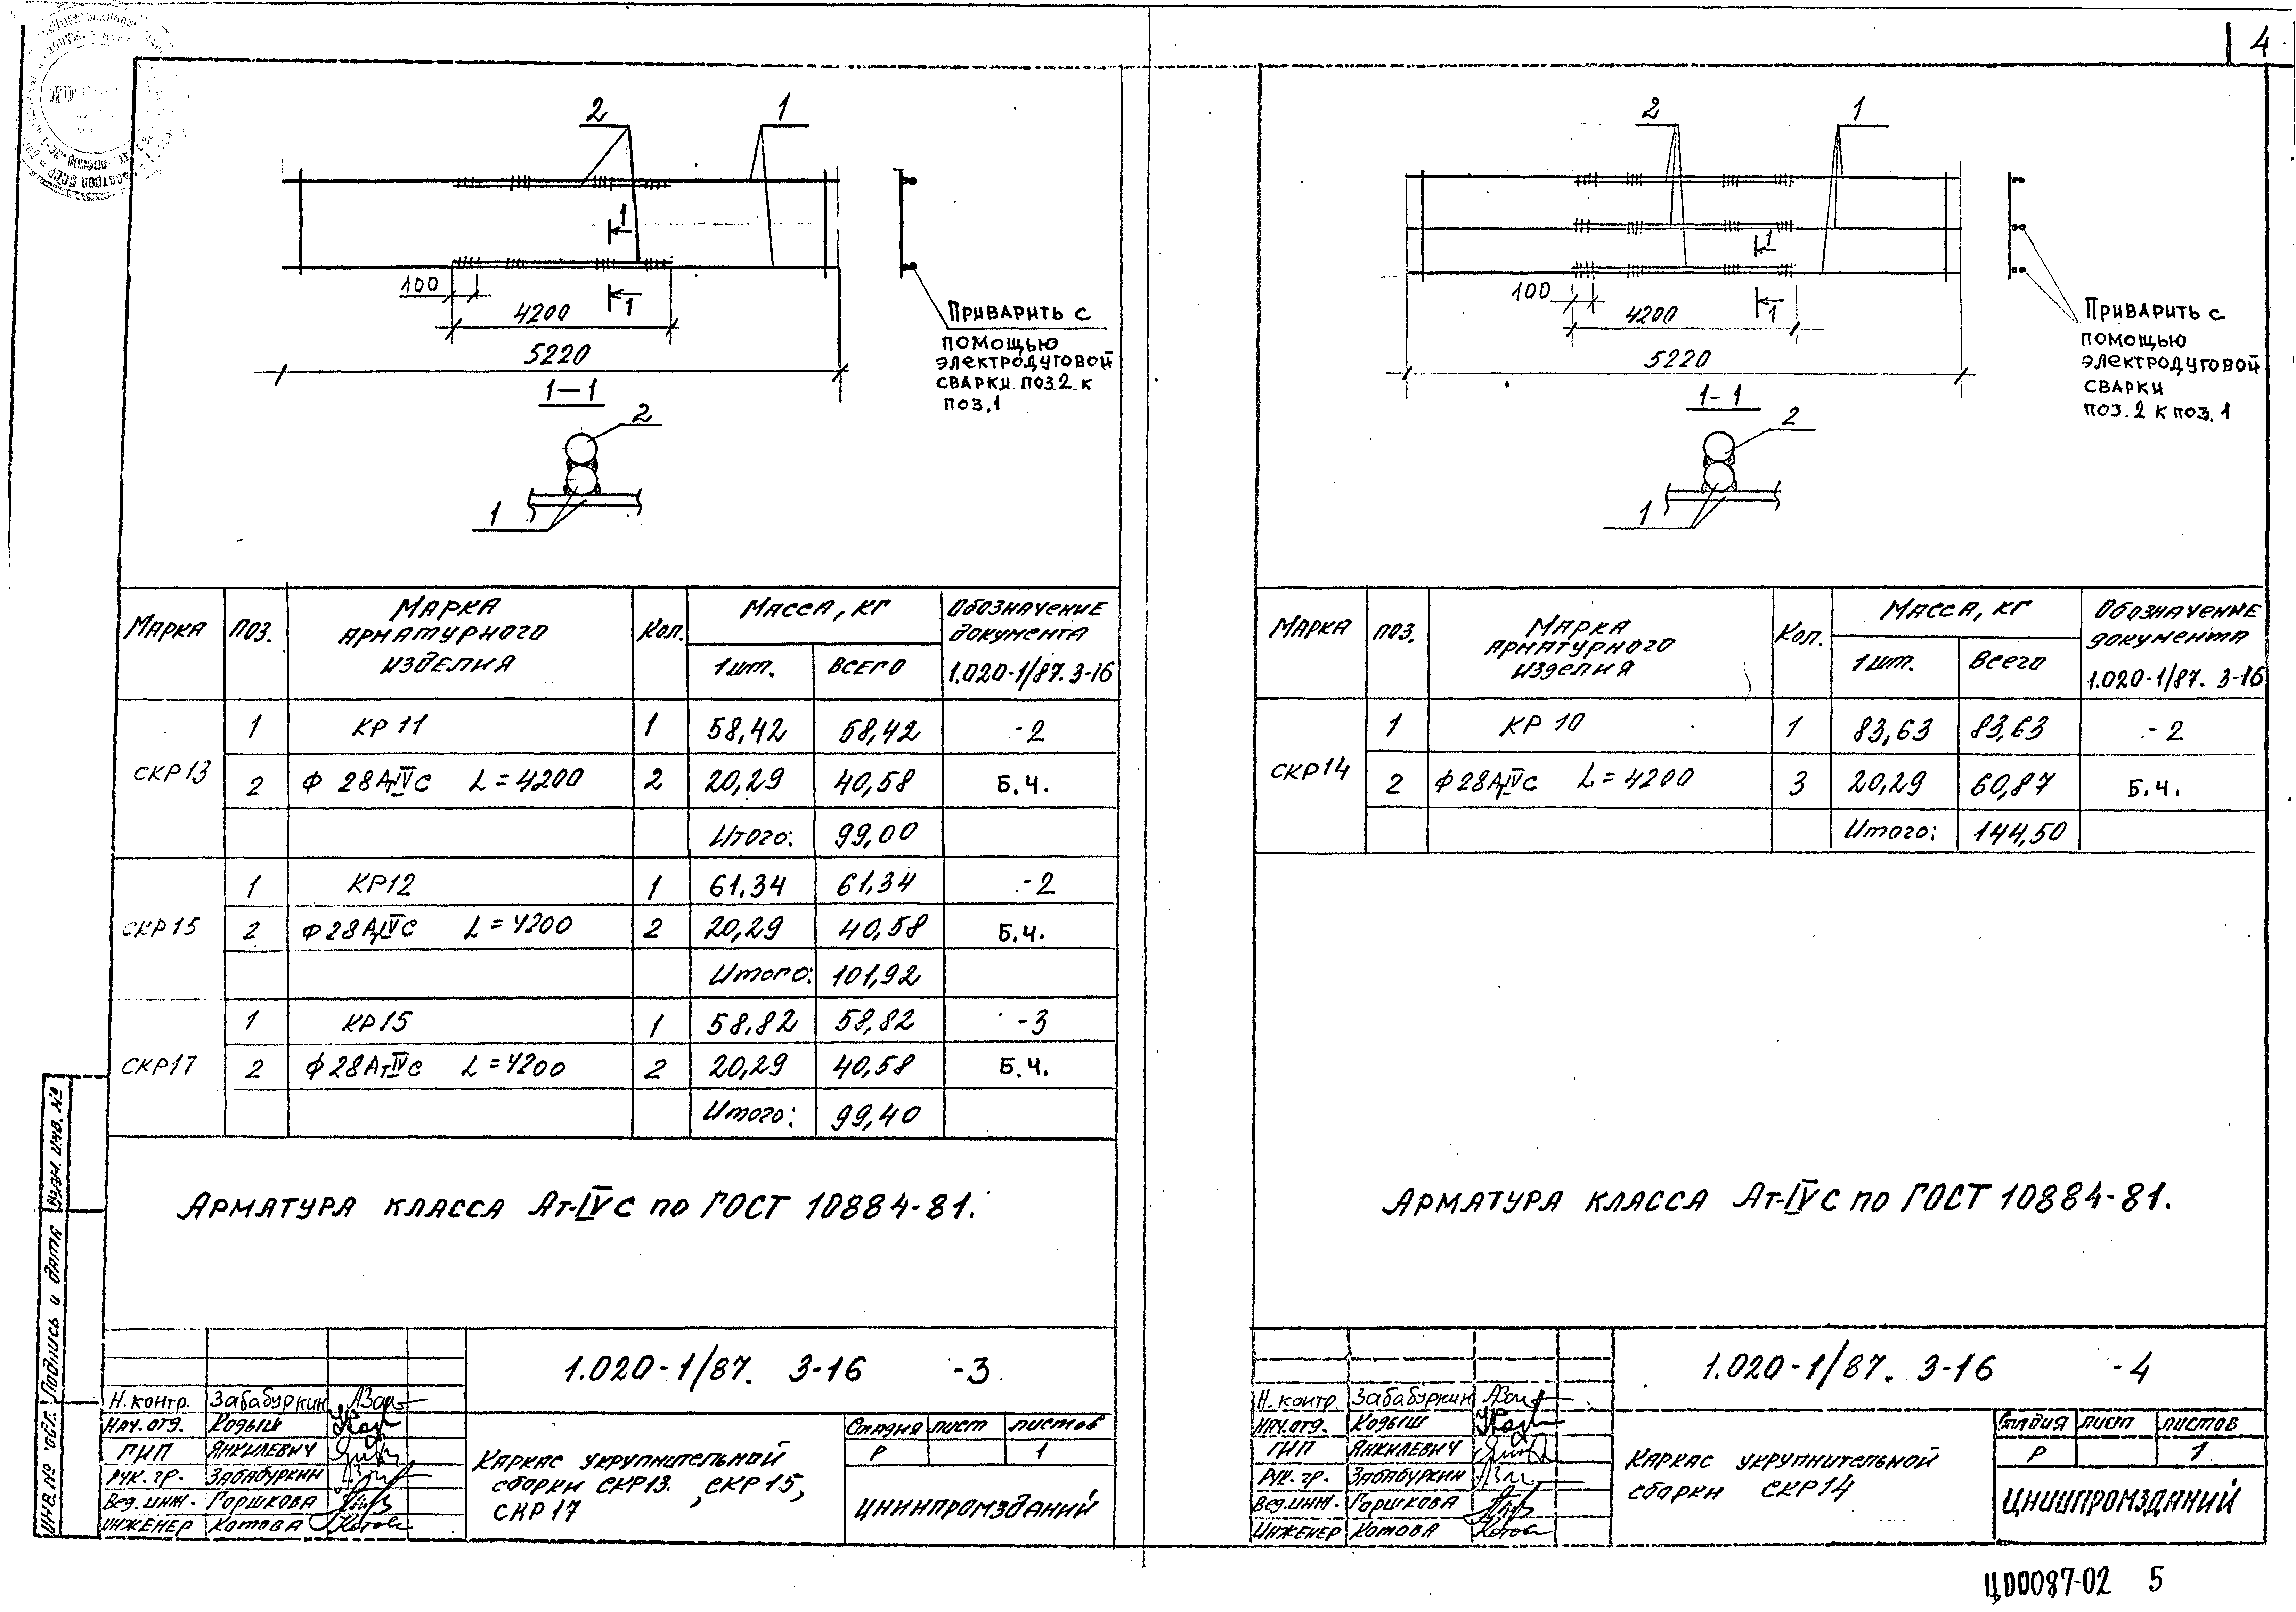 4
2 1
1
1
100
4200
5220
Приварить с
помощью
электродуговой
сварки поз.2 к
поз.1
1-1
2
1
Марка Поз. Марка арматурного изделия Кол. Масса, кг Обозначение документа
1 шт. Всего 1.020-1/87. 3-16
СКР13 1 КР 11 1 58,42 58,42 -2
2 Ф 28Ат IV С L=4200 2 20,29 40,58 Б.ч.
Итого: 99,00
СКР15 1 КР12 1 61,34 61,34 -2
2 Ф 28Ат IV С L=4200 2 20,29 40,58 Б.ч.
Итого: 101,92
СКР17 1 КР15 1 58,82 58,82 -3
2 Ф 28Ат IV С L=4200 2 20,29 40,58 Б.ч.
Итого: 99,40
Арматура класса Ат-IV С по ГОСТ 10884-81.
Инв. № подл. Подпись и дата Взам. инв. №
1.020-1/87. 3-16 -3
Н. контр. Забабуркин
Нач. отд. Кодыш
ГИП Янкилевич
Рук. гр. Забабуркин
Вед. инж. Горшкова
Инженер Котова
Каркас укрупнительной
сборки СКР13, СКР15,
СКР17
Стадия Лист Листов
Р 1
ЦНИИПРОМЗДАНИЙ
2 1
1
1
100
4200
5220
Приварить с
помощью
электродуговой
сварки
поз.2 к поз.1
1-1
2
1
Марка Поз. Марка арматурного изделия Кол. Масса, кг Обозначение документа
1 шт. Всего 1.020-1/87. 3-16
СКР14 1 КР 10 1 83,63 83,63 -2
2 Ф 28Ат IV С L=4200 3 20,29 60,87 Б.ч.
Итого: 144,50
Арматура класса Ат-IV С по ГОСТ 10884-81.
1.020-1/87. 3-16 -4
Н. контр. Забабуркин
Нач. отд. Кодыш
ГИП Янкилевич
Рук. гр. Забабуркин
Вед. инж. Горшкова
Инженер Котова
Каркас укрупнительной
сборки СКР14
Стадия Лист Листов
Р 1
ЦНИИПРОМЗДАНИЙ
ЦД0087-02 5